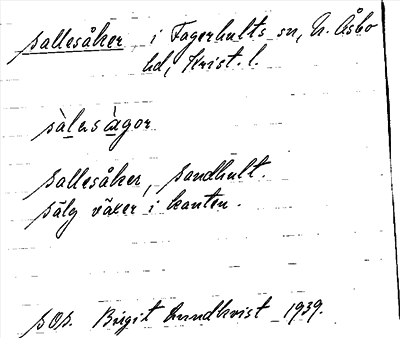 sallesåker i Fagerhults sn, N. Åsbo
hd, Krist. l.
sàlersàgor
sallesåker, sandhult.
sälg växer i kanten.
sOs. Birgit Lundkvist 1939.